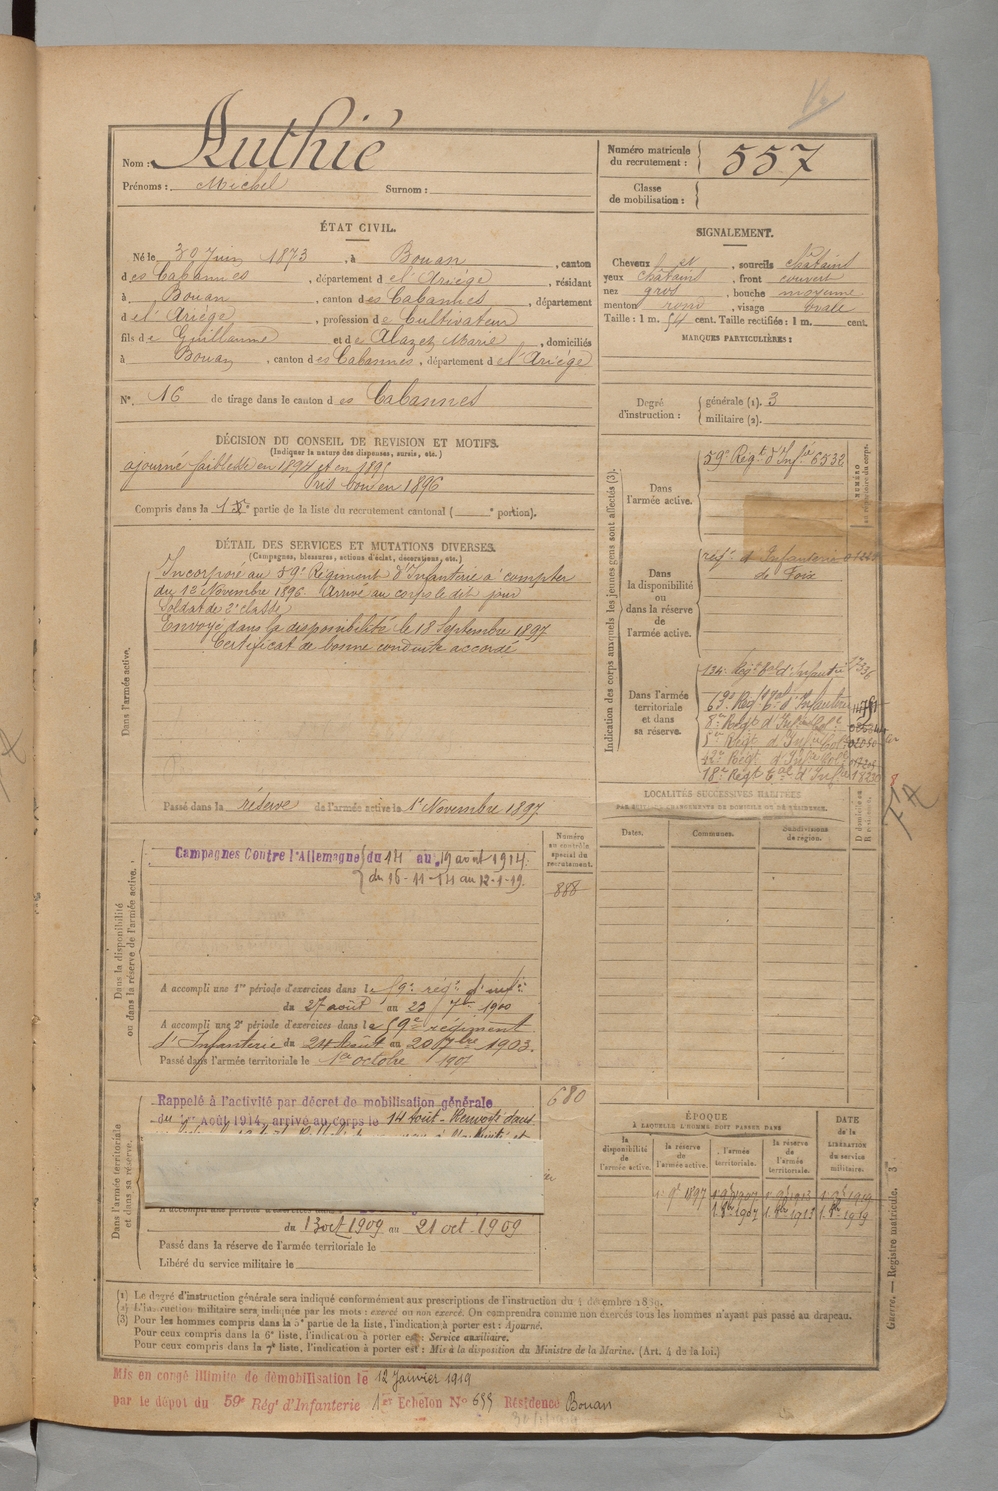 Nom : Authié
Prénoms : Michel Surnom :
Numéro matricule du recrutement : 557
Classe de mobilisation :
ÉTAT CIVIL.
Né le 30 Juin 1873, à Bouan, canton
des Cabannes, département de l'Ariège, résidant
à Bouan, canton des Cabannes, département
de l'Ariège, profession de Cultivateur
fils de Guillaume et de Alazet Marie, domiciliés
à Bouan, canton des Cabannes, département de l'Ariège
N° 16 de tirage dans le canton des Cabannes
SIGNALEMENT.
Cheveux et, sourcils châtains
yeux châtains, front couvert
nez gros, bouche moyenne
menton rond, visage ovale
Taille : 1 m. 54 cent. Taille rectifiée : 1 m. cent.
MARQUES PARTICULIÈRES :
Degré d'instruction : générale (1). 3
militaire (2).
DÉCISION DU CONSEIL DE REVISION ET MOTIFS.
(Indiquer la nature des dispenses, sursis, etc.)
ajourné faiblesse en 1894 et en 1895
Pris bon en 1896
Compris dans la 1re partie de la liste du recrutement cantonal ( e portion).
DÉTAIL DES SERVICES ET MUTATIONS DIVERSES.
(Campagnes, blessures, actions d'éclat, décorations, etc.)
Dans l'armée active.
Incorporé au 59e Régiment d'Infanterie à compter
du 12 Novembre 1896. Arrivé au corps le dit jour
Soldat de 2e classe
Envoyé dans la disponibilité le 18 Septembre 1897
Certificat de bonne conduite accordé
Passé dans la réserve de l'armée active le 1er Novembre 1897
Indication des corps auxquels les jeunes gens sont affectés (3).
NUMÉRO
Dans l'armée active.
59e Régt d'Infie 6532
Dans la disponibilité ou dans la réserve de l'armée active.
regt d'Infanterie
de Foix
Dans l'armée territoriale et dans sa réserve.
134e Régt tal d'Infanterie
8e Régt d'Infie Cole
5e Régt d'Infie Cole
12e Régt d'Infie Cole
18e Régt tal d'Infie
LOCALITÉS SUCCESSIVES HABITÉES
PAR SUITE DE CHANGEMENTS DE DOMICILE OU DE RÉSIDENCE.
Dates. Communes. Subdivisions de région.
D domicile ou R résidence.
Dans la disponibilité ou dans la réserve de l'armée active.
Numéro au contrôle spécial du recrutement.
888
Campagnes Contre l'Allemagne du 14 au 19 août 1914.
du 16-11-14 au 12-1-19.
A accompli une 1re période d'exercices dans le 59e régt d'infie
du 27 août au 23 7bre 1900
A accompli une 2e période d'exercices dans le 59e régiment
d'Infanterie du 24 Août au 20 7bre 1903.
Passé dans l'armée territoriale le 1er octobre 1907
Dans l'armée territoriale et dans sa réserve.
680
Rappelé à l'activité par décret de mobilisation générale
du 1er Août 1914, arrivé au corps le 14 Août - Renvoyé dans
A accompli une période d'exercices dans
du 13 oct 1909 au 21 oct. 1909
Passé dans la réserve de l'armée territoriale le
Libéré du service militaire le
ÉPOQUE
À LAQUELLE L'HOMME DOIT PASSER DANS
la disponibilité de l'armée active. la réserve de l'armée active. l'armée territoriale. la réserve de l'armée territoriale.
DATE de la LIBÉRATION du service militaire.
1. 9bre 1897 1. 9bre 1907 1. 9bre 1913 1. 9bre 1919
1. 8bre 1907 1. 8bre 1913 1. 8bre 1919
Guerre. — Registre matricule. 3
(1) Le degré d'instruction générale sera indiqué conformément aux prescriptions de l'instruction du 4 décembre 1889.
(2) L'instruction militaire sera indiquée par les mots : exercé ou non exercé. On comprendra comme non exercés tous les hommes n'ayant pas passé au drapeau.
(3) Pour les hommes compris dans la 5e partie de la liste, l'indication à porter est : Ajourné.
Pour ceux compris dans la 6e liste, l'indication à porter est : Service auxiliaire.
Pour ceux compris dans la 7e liste, l'indication à porter est : Mis à la disposition du Ministre de la Marine. (Art. 4 de la loi.)
Mis en congé illimité de démobilisation le 12 Janvier 1919
par le dépôt du 59e Régt d'Infanterie 1er Echelon N° 655 Résidence Bouan